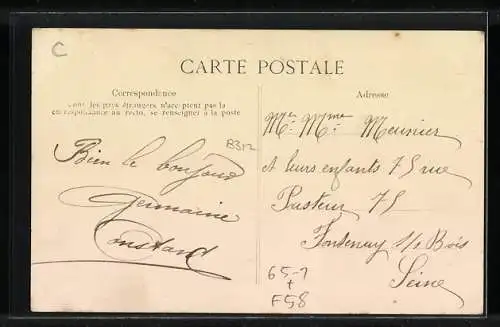 C
CARTE POSTALE
Correspondance
Tous les pays étrangers n'acceptent pas la
correspondance au recto, se renseigner à la poste
Adresse
Bien le bonjour
Germaine
Constard
B312
Mr. Mme Meunier
et leurs enfants 75 rue
Pasteur 75
Fontenay s/s Bois
Seine
65-1
+
F58